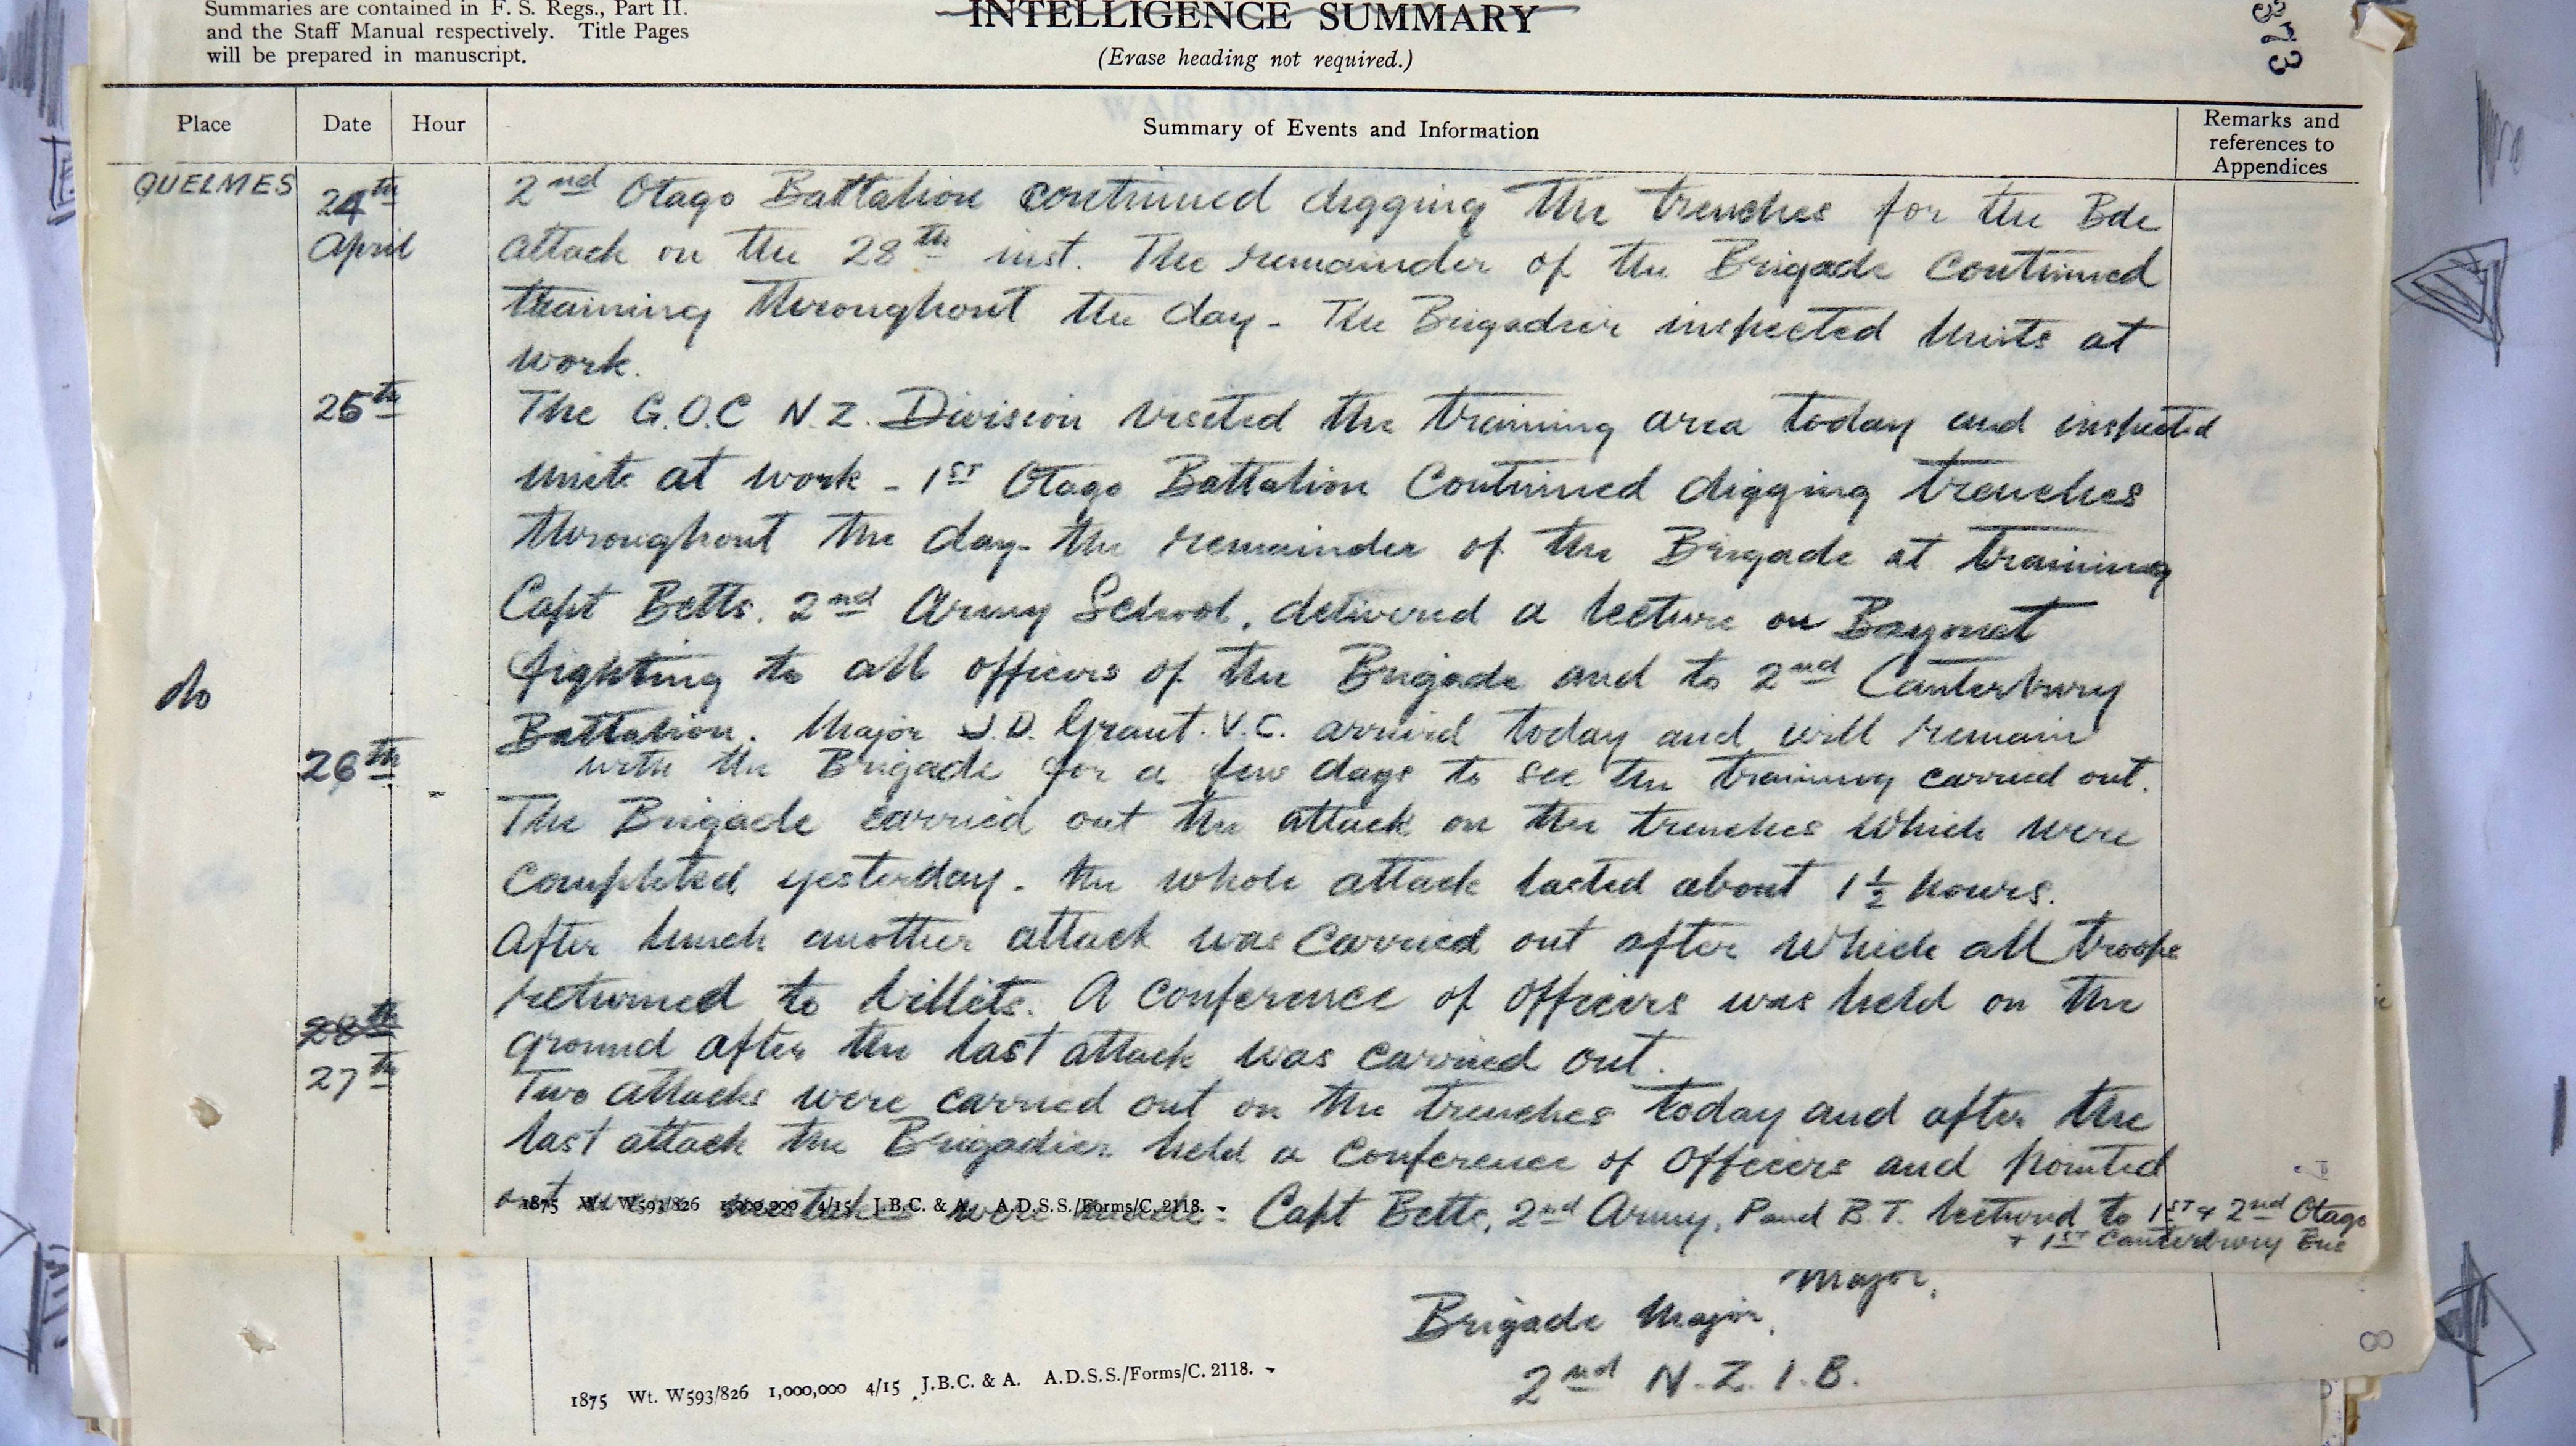 Summaries are contained in F. S. Regs., Part II.
and the Staff Manual respectively. Title Pages
will be prepared in manuscript.
INTELLIGENCE SUMMARY
(Erase heading not required.)
373
Place Date Hour Summary of Events and Information Remarks and references to Appendices
QUELMES 24th April
2nd Otago Battalion continued digging the trenches for the Bde
attack on the 28th inst. The remainder of the Brigade continued
training throughout the day - The Brigadier inspected Units at
work.
25th The G.O.C N.Z. Division visited the training area today and inspected
units at work - 1ST Otago Battalion Continued digging trenches
throughout the day - the remainder of the Brigade at training
Capt Betts. 2nd Army School, delivered a lecture on Bayonet
fighting to all officers of the Brigade and to 2nd Canterbury
do Battalion. Major J.D. Grant. V.C. arrived today and will remain
with the Brigade for a few days to see the training carried out.
26th The Brigade carried out the attack on the trenches which were
completed yesterday - the whole attack lasted about 1½ hours.
After lunch another attack was carried out after which all troops
returned to billets. A conference of officers was held on the
28th ground after the last attack was carried out.
27th Two attacks were carried out on the trenches today and after the
last attack the Brigadier held a Conference of Officers and pointed
out mistakes were made - Capt Betts, 2nd Army, P and B.T. lectured to 1ST + 2nd Otago
+ 1ST Canterbury Bns
1875 Wt. W593/826 1,000,000 4/15 J.B.C. & A. A.D.S.S./Forms/C. 2118.
Major.
Brigade Major,
2nd N.Z.I.B.
1875 Wt. W593/826 1,000,000 4/15 J.B.C. & A. A.D.S.S./Forms/C. 2118.
8